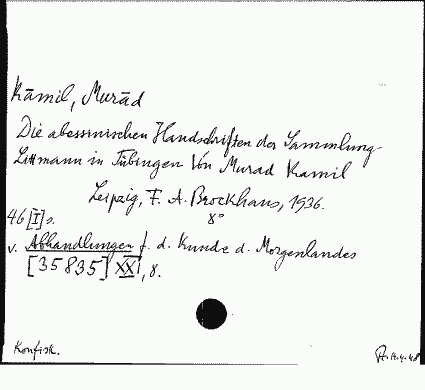 Kāmil, Murād
Die abessinischen Handschriften der Sammlung
Littmann in Tübingen Von Murad Kamil
Leipzig, F. A. Brockhaus, 1936.
8°
46 [I] s.
v. Abhandlungen f. d. Kunde d. Morgenlandes
[35835] XXI, 8.
Konfisk.